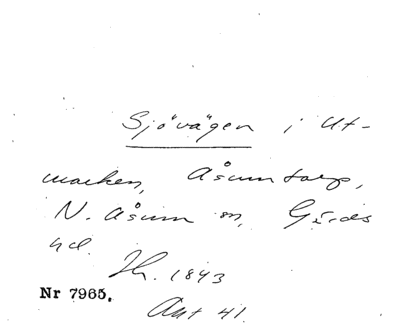 Sjövägen i Ut-
marken, Åsumtorp,
N. Åsum sn, Gärds
hd.
Hr. 1843
Nr 7965.
Akt 41.